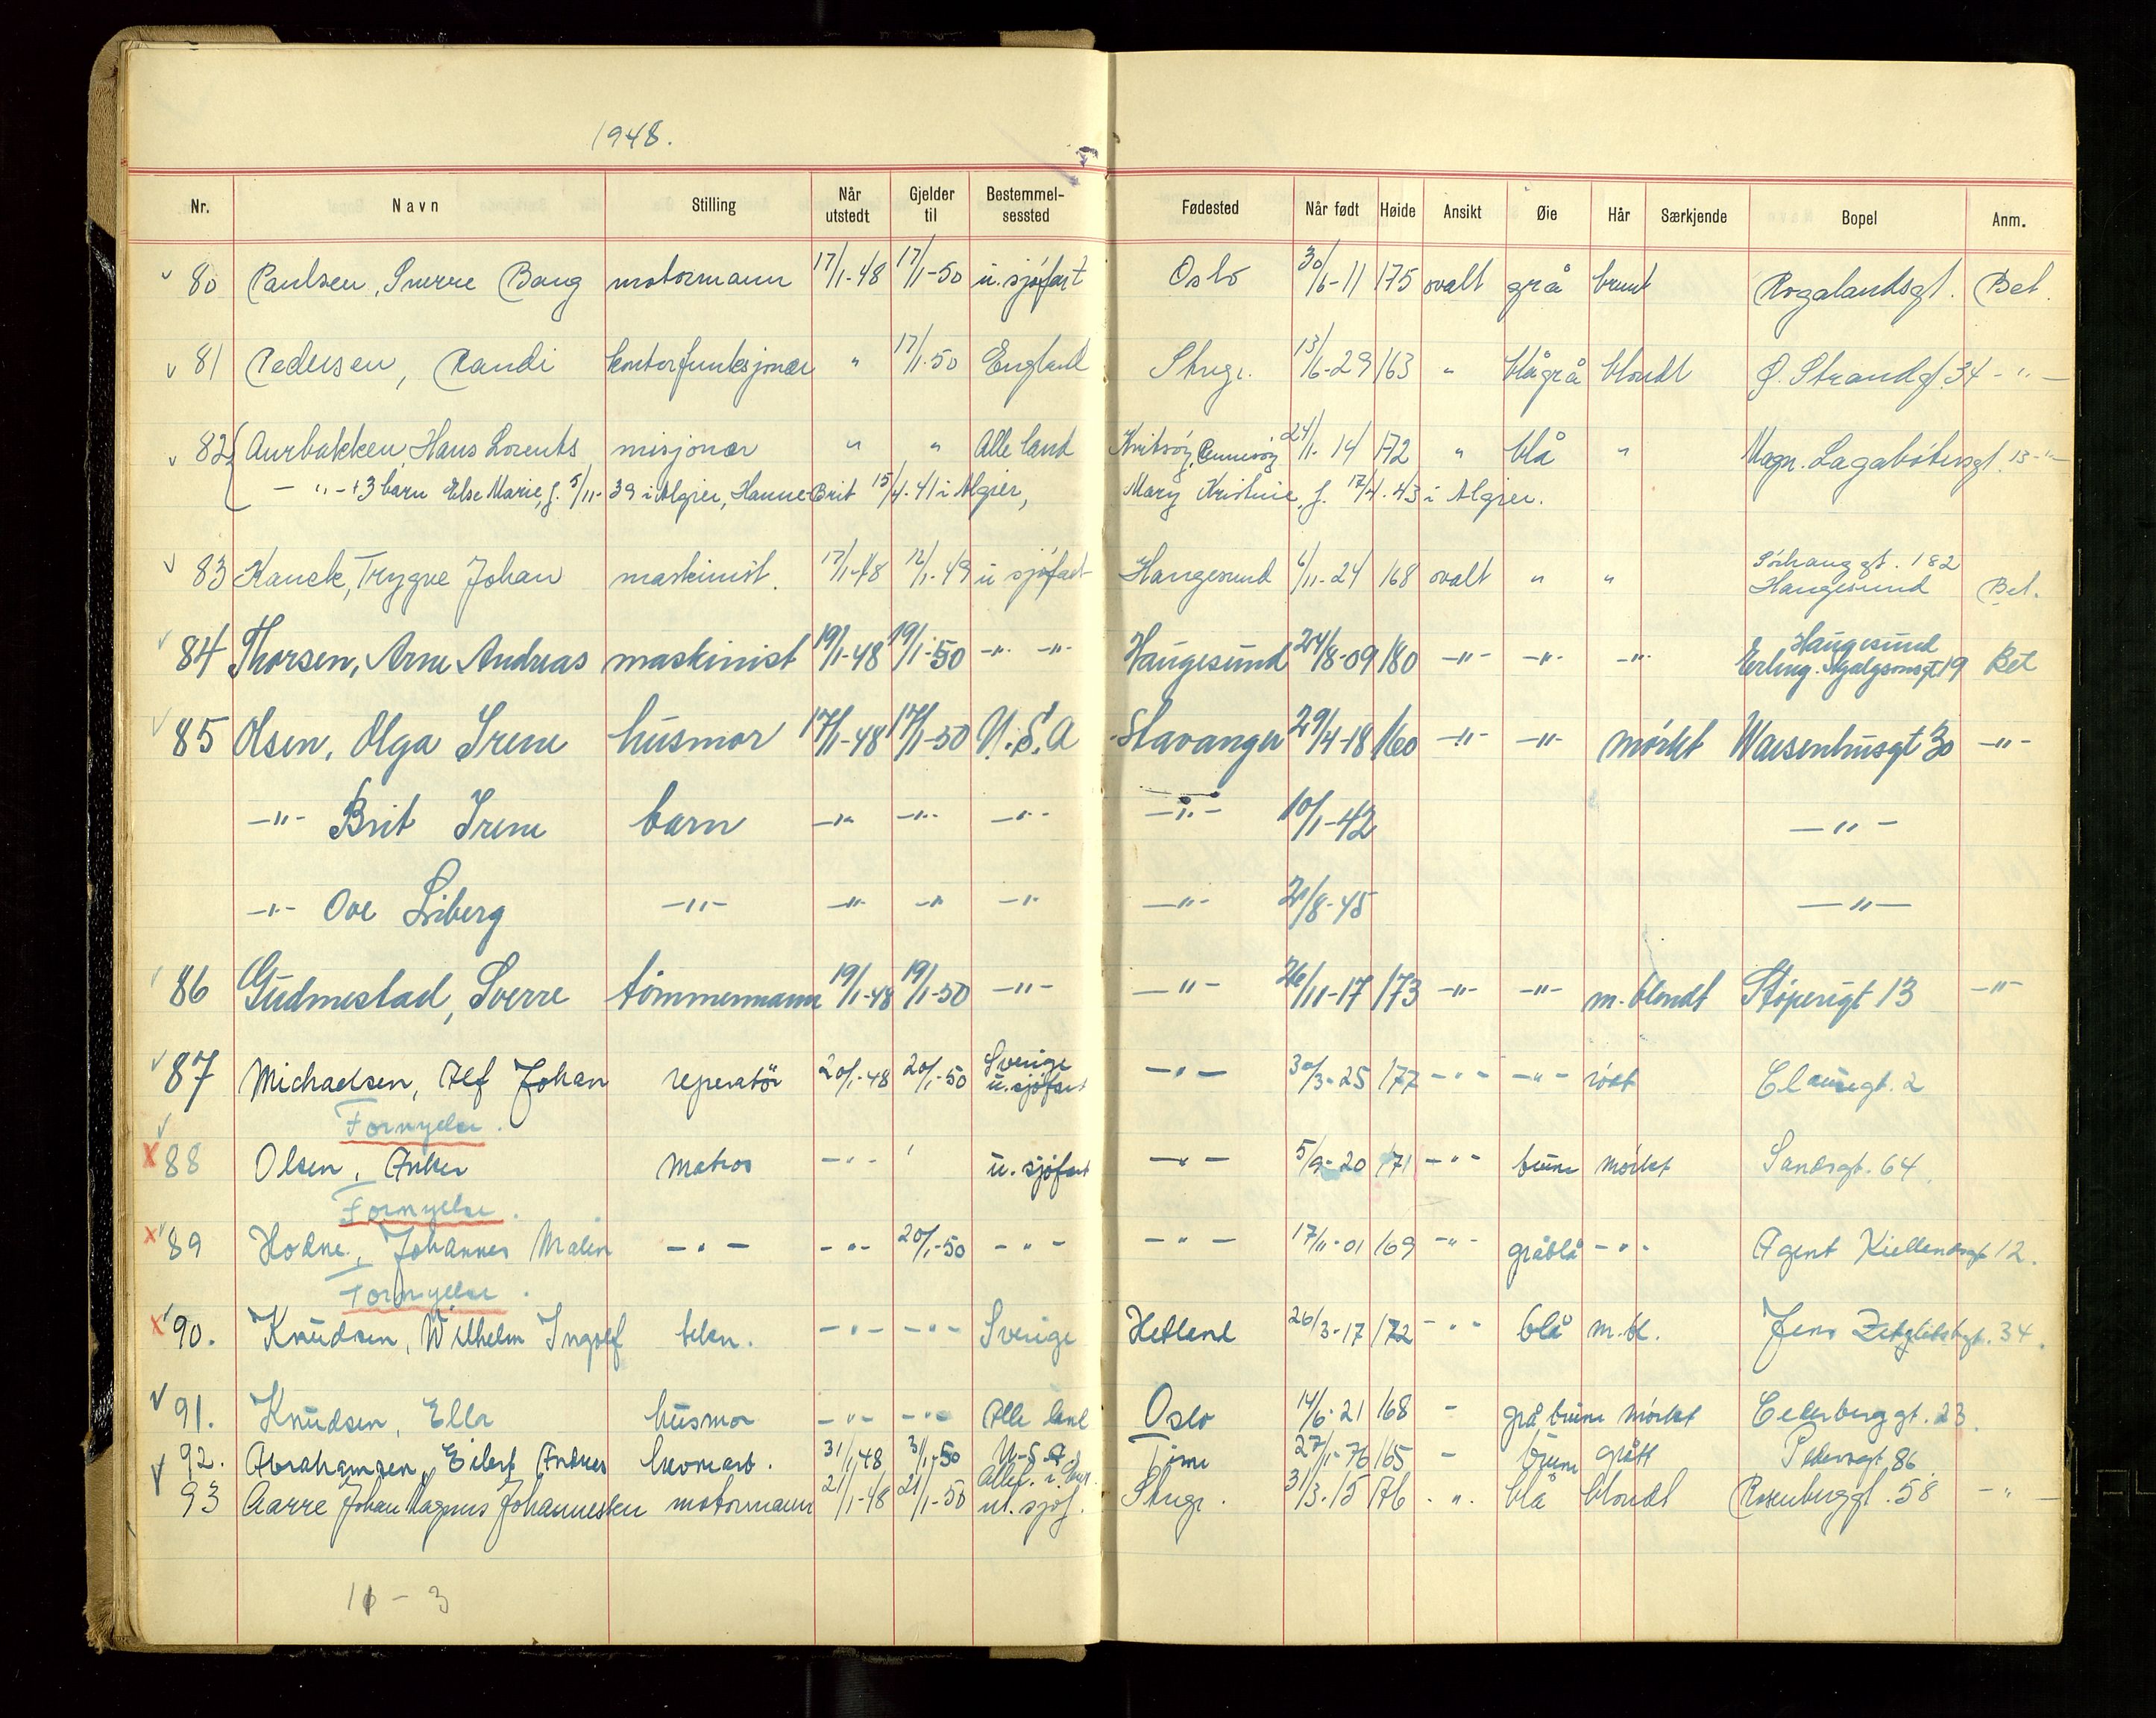 1948.
Nr. Navn Stilling Når utstedt Gjelder til Bestemmelsessted Fødested Når født Høide Ansikt Øie Hår Særkjende Bopel Anm.
80 Paulsen, Sverre Bang motormann 17/1-48 17/1-50 u. sjøfart Oslo 30/6-11 175 ovalt grå brunt Rogalandsgt. Bet.
81 Pedersen, Randi kontorfunksjonær " 17/1-50 England Stvgr. 13/6-29 163 " blågrå blondt Ø. Strandgt. 34 - " -
82 Aurbakken Hans Lorents misjonær " " Alle land Kvitsøy, 24/1-14 172 " blå " Magn. Lagabøtersgt. 13 - " -
- " - + 3 barn Else Marie, f. 5/11-39 i Algier, Hanne-Brit 15/4-41 i Algier, Mary Kristine, f. 17/4-43 i Algier.
83 Kanck, Trygve Johan maskinist. 17/1-48 12/1-49 u sjøfart Haugesund 6/11-24 168 ovalt " " Sørhauggt. 182
Haugesund Bet.
84 Thorsen, Arne Andreas maskinist 19/1-48 19/1-50 - " - - " - Haugesund 24/8-09 180 - " - - " - - " - Haugesund
Erling 19 Bet
85 Olsen, Olga Irene husmor 17/1-48 17/1-50 U.S.A Stavanger 29/4-18 160 - " - - " - mørkt Waisenhusgt 30 - " -
- " - Brit Irene barn - " - - " - - " - - " - 10/1-42 - " -
- " - Ove Liberg - " - - " - - " - - " - - " - 21/8-45 - " -
86 Gudmestad, Sverre tømmermann 19/1-48 19/1-50 - " - - " - 26/11-17 173 - " - - " - m. blondt Støperigt 13 - " -
87 Michaelsen, Alf Johan reperatør 20/1-48 20/1-50 Sverige
u. sjøfart - " - 30/3-25 177 - " - - " - rødt Clausegt. 2
Fornyelse.
88 Olsen, Anker matros - " - u. sjøfart - " - 5/9-20 171 - " - brune mørkt Sandsgt. 64
Fornyelse.
89 Hodne, Johannes Malin - " - - " - 20/1-50 - " - - " - 17/11-01 169 - " - gråblå - " - Agent Kiellandsgt 12.
Fornyelse.
90. Knudsen, Wilhelm Ingolf tekn. - " - - " - Sverige Hetland 26/3-17 172 - " - blå m.bl. Jens Zetglitzsgt. 34.
91. Knudsen, Ella husmor - " - - " - Alle land Oslo 14/6-21 168 - gråbrune mørkt Cederberggt. 23
92. Abrahamsen, Eilert Andreas 31/1-48 31/1-50 U-S.A. Time 27/11-76 165 - brune grått Pedersgt 86
93 Aarre Johan Magnus Johannessen motormann 21/1-48 21/1-50 ut. sjøf. Stvgr. 31/3-15 176 - " - blå blondt Rosenberggt. 58 - " -
11 - 3